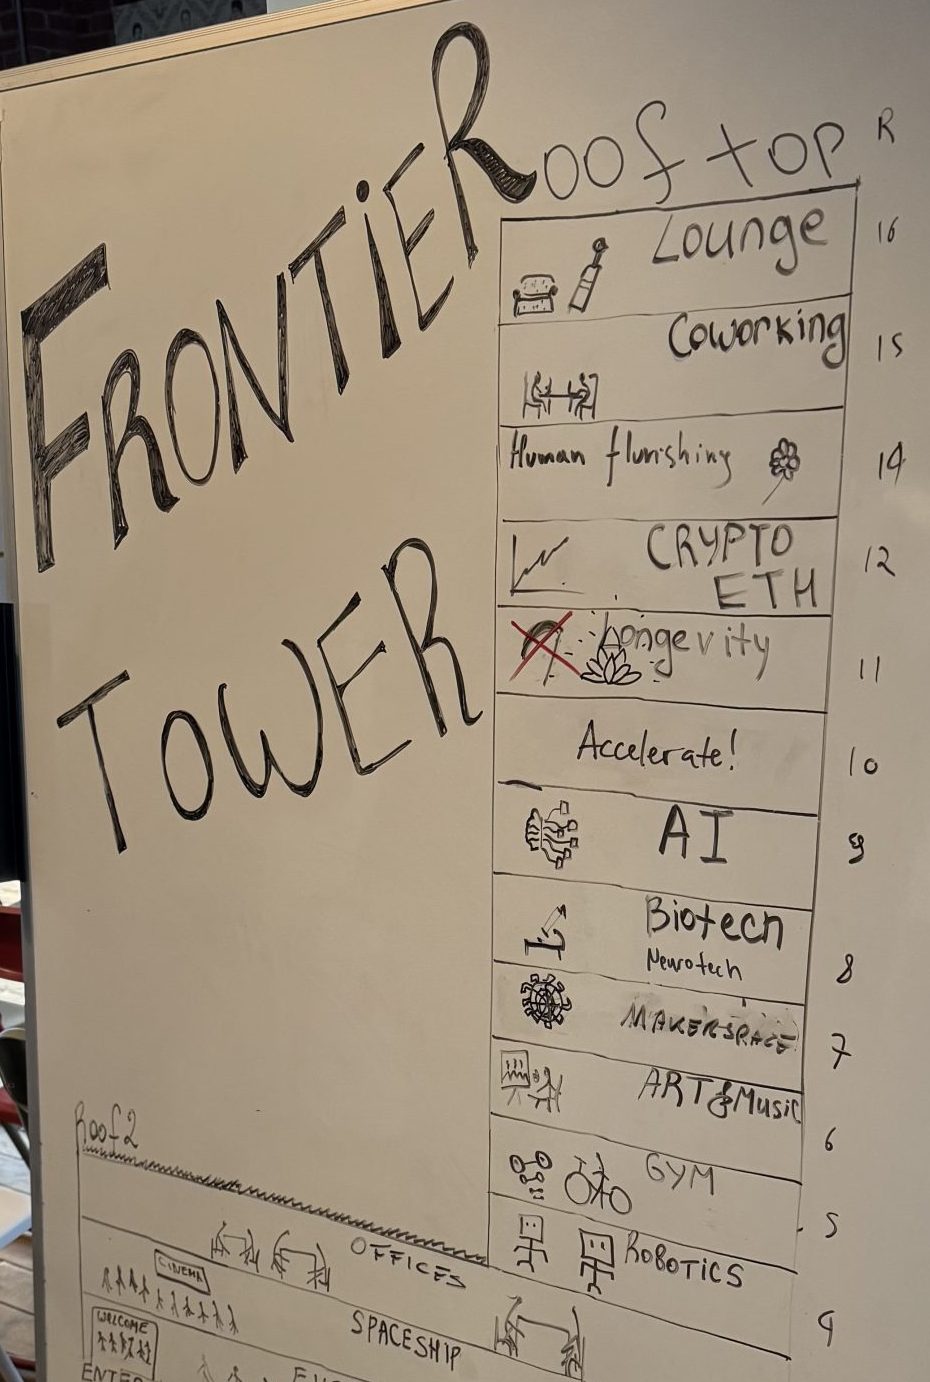 FRONTiER
Rooftop R
Lounge 16
Coworking 15
Human flurishing 14
CRYPTO 12
ETH
Longevity 11
Accelerate! 10
AI 9
Biotech
Neurotech 8
MAKERSPACE 7
ART & Music 6
GYM 5
ROBOTICS 4
TOWER
Roof 2
OFFICES
CINEMA
SPACESHIP
WELCOME